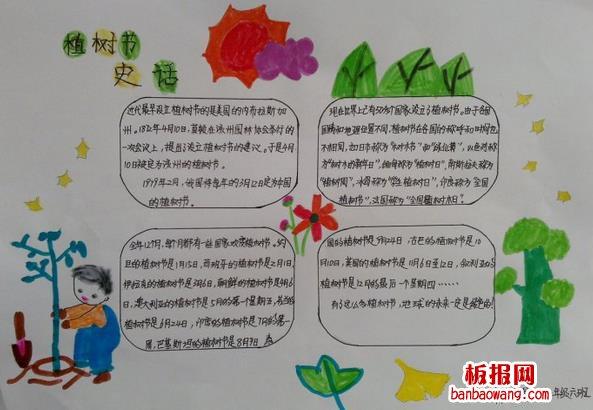 植树节
史话
近代最早设立植树节的是美国的内布拉斯加
州。1872年4月10日,莫顿在该州园林协会举行的
一次会议上,提出了设立植树节的建议。于是4月
10日被定为该州的植树节。
1979年2月,我国将每年的3月12日定为中国
的植树节。
现在世界上已有50多个国家设立了植树节。由于各国
国情和地理位置不同,植树节在各国的称呼和时间也
不相同,如日本称为“树木节”和“绿化周”,以色列称
为“树木的新年日”,缅甸称为“植树日”,南斯拉夫称为
“植树周”,冰岛称为“学生植树日”,印度称为“全国
植树节”,法国称为“全国植树日”。
全年12个月,每个月都有一些国家欢度植树节。约
旦的植树节是1月15日,西班牙的植树节是2月1日,
伊拉克的植树节是3月6日,朝鲜的植树节是4月6
日,澳大利亚的植树节是5月的第一个星期五,
的植树节是6月24日,印度的植树节是7月的第一
周,巴基斯坦的植树节是8月9日,泰
国的植树节是9月24日,古巴的植树节是10
月10日,英国的植树节是11月6日至12日,叙利亚的
植树节是12月的最后一个星期四……
有了这么多植树节,地球的未来一定是绿色的!
年级六班
板报网
banbaowang.com